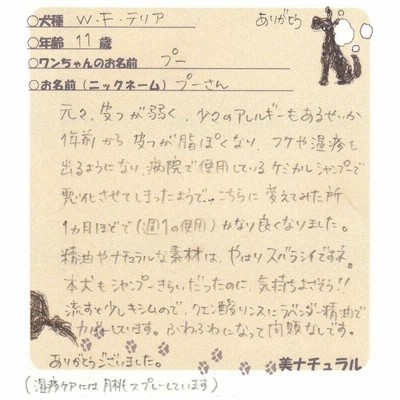 ○犬種 W・F・テリア
ありがとう
○年齢 11 歳
○ワンちゃんのお名前 プー
○お名前(ニックネーム) プーさん
元々、皮フが弱く、少々のアレルギーもあるせいか
1年前から皮フが脂ぽくなり、フケや湿疹も
出るようになり、病院で使用しているケミカルシャンプーで
悪化させてしまったようで、こちらに変えてみた所
1ヵ月ほどで(週1の使用)かなり良くなりました。
精油やナチュラルな素材は、やはりスバラシイですネ。
本犬もシャンプーきらいだったのに、気持ちよさそう!!
流すと少しキシムので、クエン酸リンスにラベンダー精油で
しています。ふわふわになって問題なしです。
ありがとうございました。
美ナチュラル
(湿疹ケアには月桃スプレーしています)